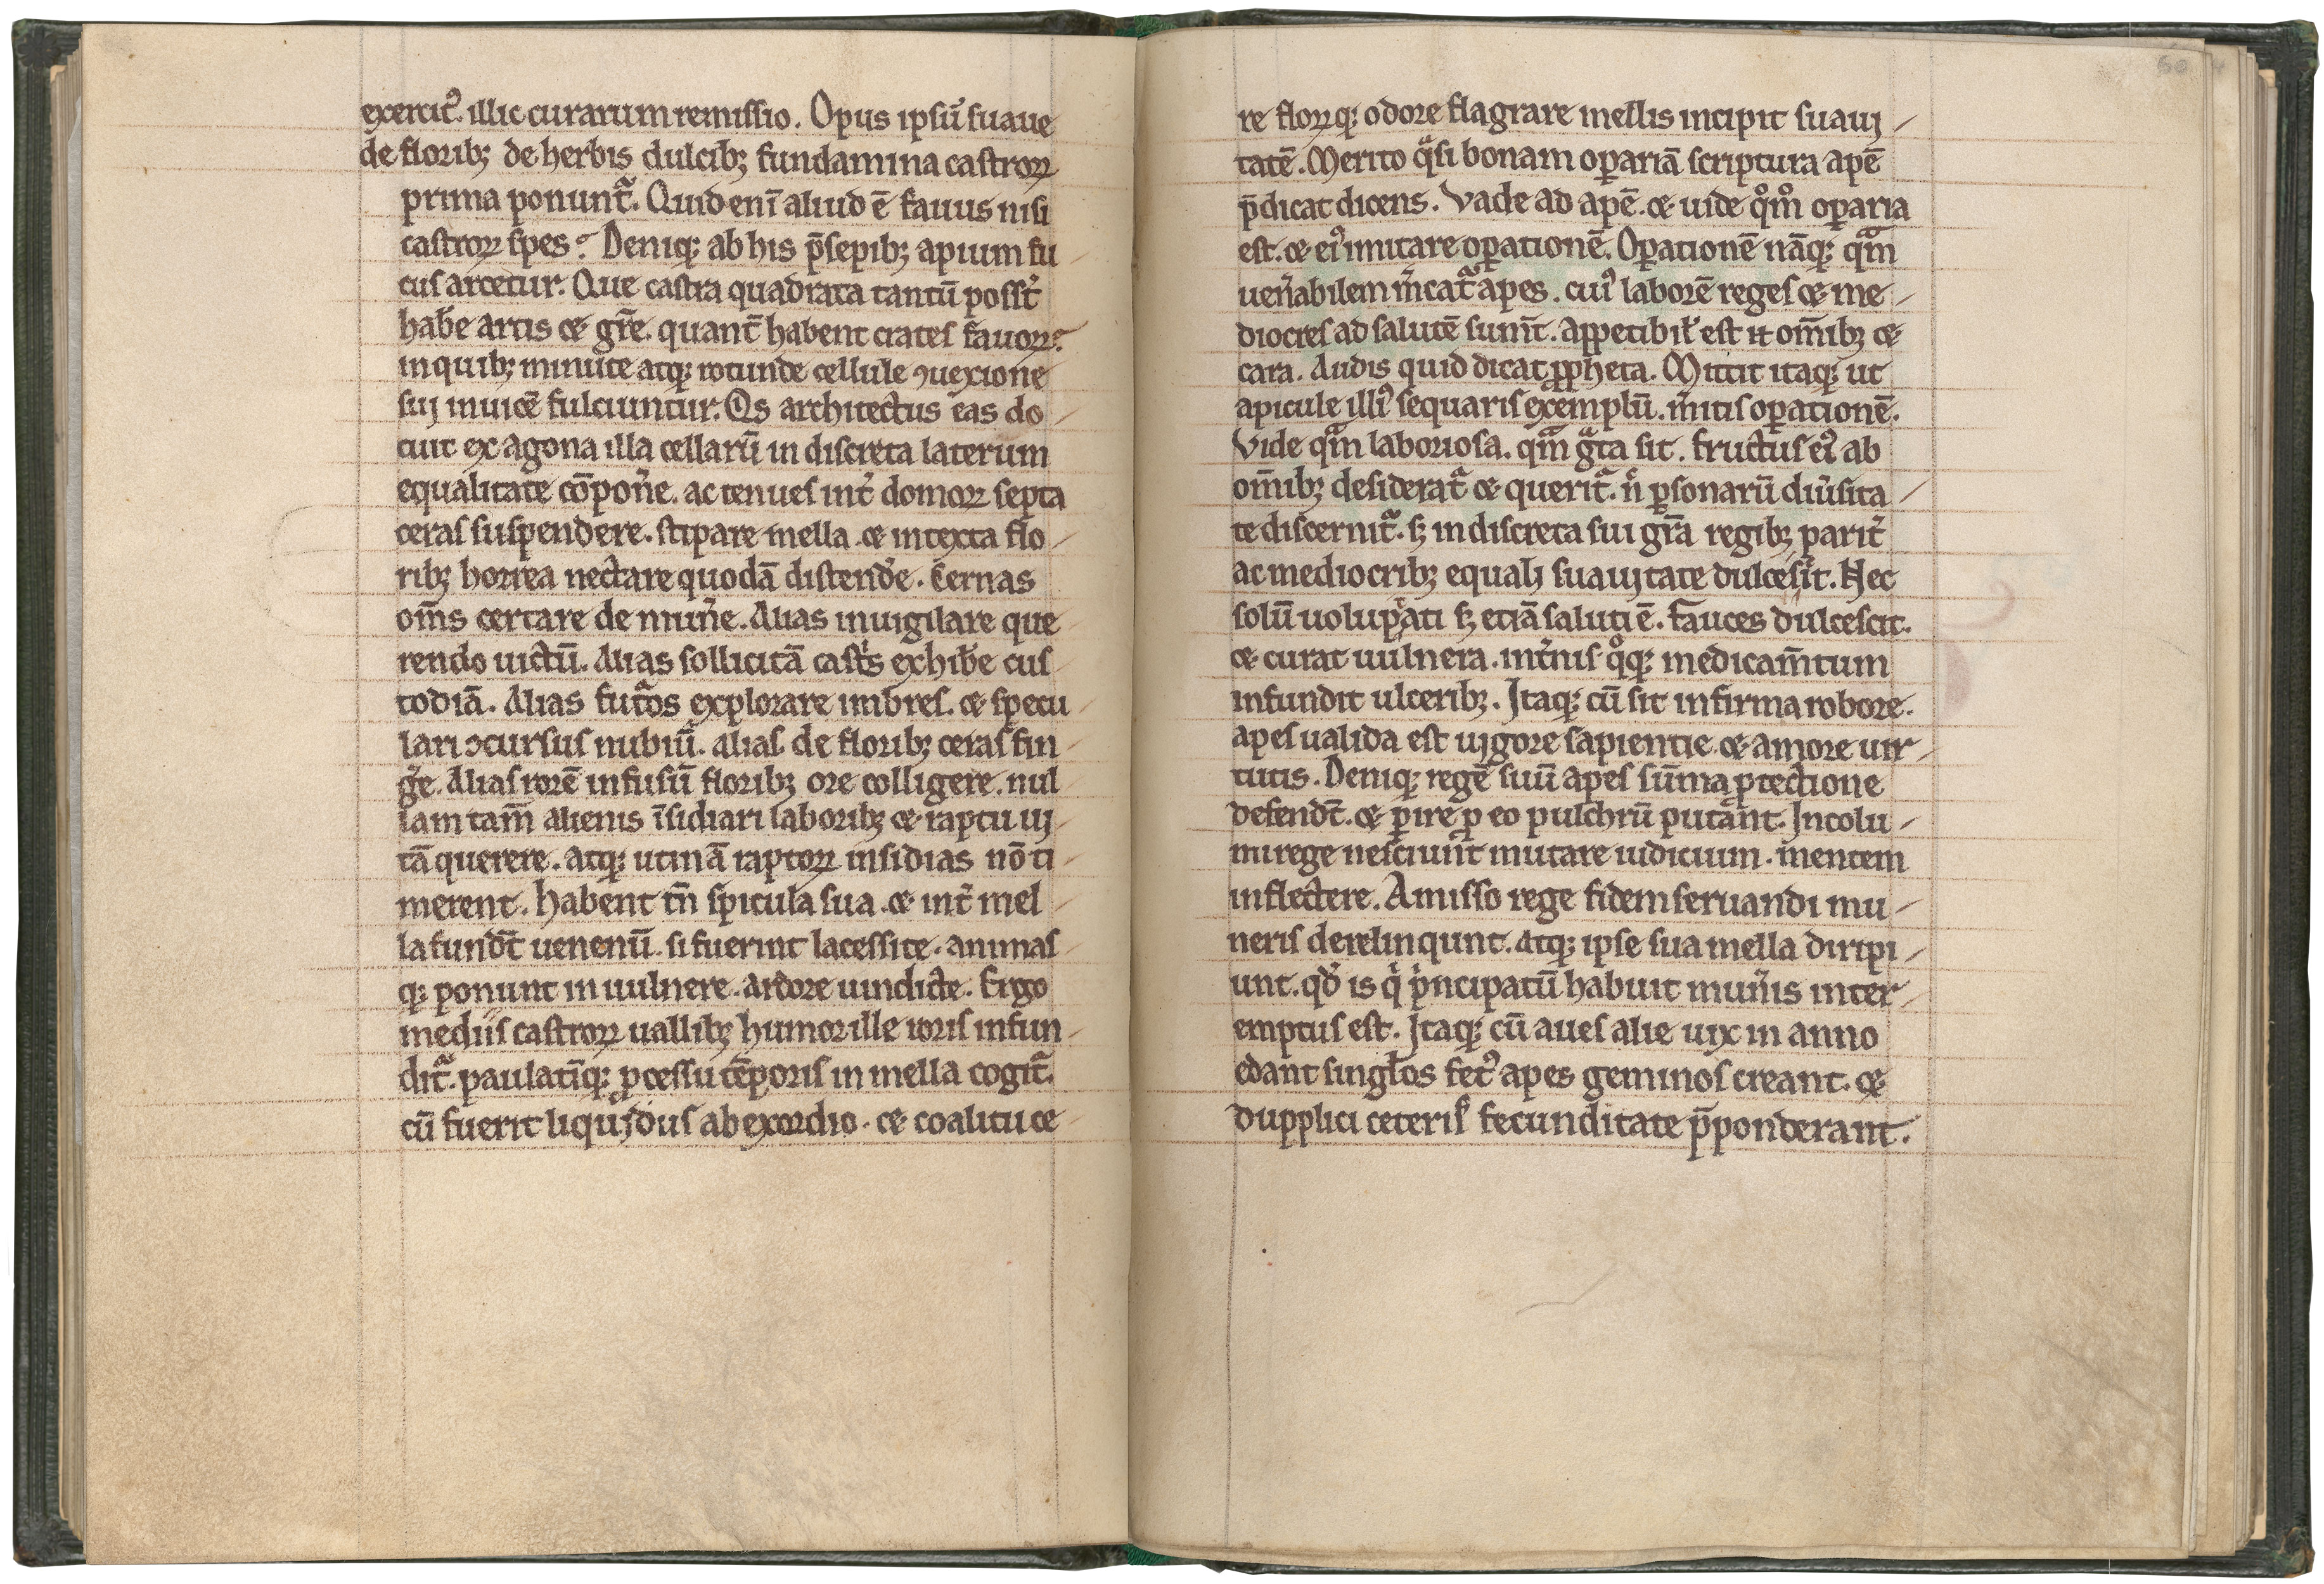 exercit᷒. illic curarum remissio. Opus ipsū suaue
de florib; de herbis dulcib; fundamina castroꝝ
prima ponuntᷓ. Quid eni̅ aliud ē fauus nisi
castroꝝ spes? Deniq; ab his p̄sepib; apium fu
cus arcetur. Que castra quadrata tantū posst᷑
hab̄e artis ⁊ gr̄e. quant̄ habent crates fauoꝝ?
in quib; minute atq; rotunde cellule ꝯuexione
sui inuicē fulciuntur. Qs architectus eas do
cuit exagona illa cellarū in discreta laterum
equalitate cōpon᷑e. ac tenues int᷑ domoꝝ septa
ceras suspendere. stipare mella ⁊ intexta flo
rib; horrea nectare quodā distend᷑e. Cernas
om̄s certare de mun᷑e. Alias inuigilare que
rendo uictū. Alias sollicitā cast᷑s exhib᷑e cus
todiā. Alias fut᷑os explorare imbres. ⁊ specu
lari ꝯcursus nubiū. alias de florib; ceras fin
g᷑e. Alias rorē infusū florib; ore colligere. nul
lam tam̄ alienis īsidiari laborib; ⁊ raptu ui
tā querere. atq; utinā raptoꝝ insidias nō ti
merent. habent tn̄ spicula sua. ⁊ int᷑ mel
la fundt̄ uenenū. si fuerint lacessite. animas
q; ponunt in uulnere. ardore uindicte. Ergo
mediis castroꝝ uallib; humor ille roris infun
ditᷓ. paulatīq; ꝓcessu tēporis in mella cogitᷓ.
cū fuerit liquidus ab exordio. ⁊ coalitu ce
60
re floꝝq; odore flagrare mellis incipit suaui
tatē. Merito qᷓsi bonam oꝑariā scriptura apē
p̄dicat dicens. Vade ad apē. ⁊ uide qͦmͦ oꝑaria
est. ⁊ ei᷒ imitare oꝑationē. Oꝑationē nāq; qᷓm
uen᷑abilem m᷑catᷓ apes. cui᷒ laborē reges ⁊ me
diocres ad salutē sumt̄. appetibił est .n. om̄ib; ⁊
cara. Audis quid dicat ꝓpheta. Mittit itaq; ut
apicule illi᷒ sequaris exemplū. mitis oꝑationē.
Vide qᷓm laboriosa. qᷓm gᷓta sit. fructus ei᷒ ab
om̄ib; desideratᷓ ⁊ queritᷓ. n̄ ꝑsonarū diu᷑sita
te discernitᷓ. s; in discreta sui gr̄a regib; parit᷑
ac mediocrib; equali suauitate dulcescit. Nec
solū uoluptati s; etiā saluti ē. fauces dulcescit.
⁊ curat uulnera. int᷑nis qͦq; medicam̄tum
infundit ulcerib;. Itaq; cū sit infirma robore.
apes ualida est uigore sapientie ⁊ amore uir
tutis. Deniq; regē suū apes sūma ꝓtectione
defendt̄. ⁊ ꝑire ꝓ eo pulchrū putant. Incolu
mi rege nesciunt mutare iudicium. mentem
inflectere. Amisso rege fidem seruandi mu
neris derelinqunt. atq; ipse sua mella diripi
unt. qđ is qͥ pͥncipatū habuit mun᷑is inter
emptus est. Itaq; cū aues alie uix in anno
edant singłos fet᷒ apes geminos creant. ⁊
dupplici ceteris fecunditate p̄ponderant.